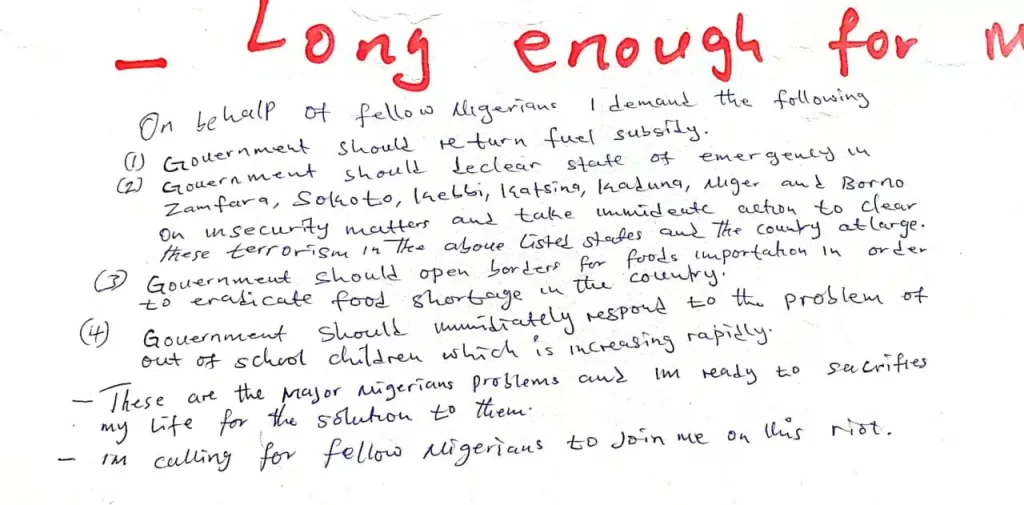 - Long enough for
On behalf of fellow Nigerians I demand the following
(1) Government should return fuel subsidy.
(2) Government should declear state of emergency in
Zamfara, Sokoto, Kebbi, Katsina, Kaduna, Niger and Borno
on insecurity matters and take immideate action to clear
these terrorism in the above listed states and the country at large.
(3) Government should open borders for foods importation in order
to eradicate food shortage in the country.
(4) Government should immidiately respond to the problem of
out of school children which is increasing rapidly.
- These are the major Nigerians problems and im ready to sacrifies
my life for the solution to them.
- im calling for fellow Nigerians to Join me on this riot.